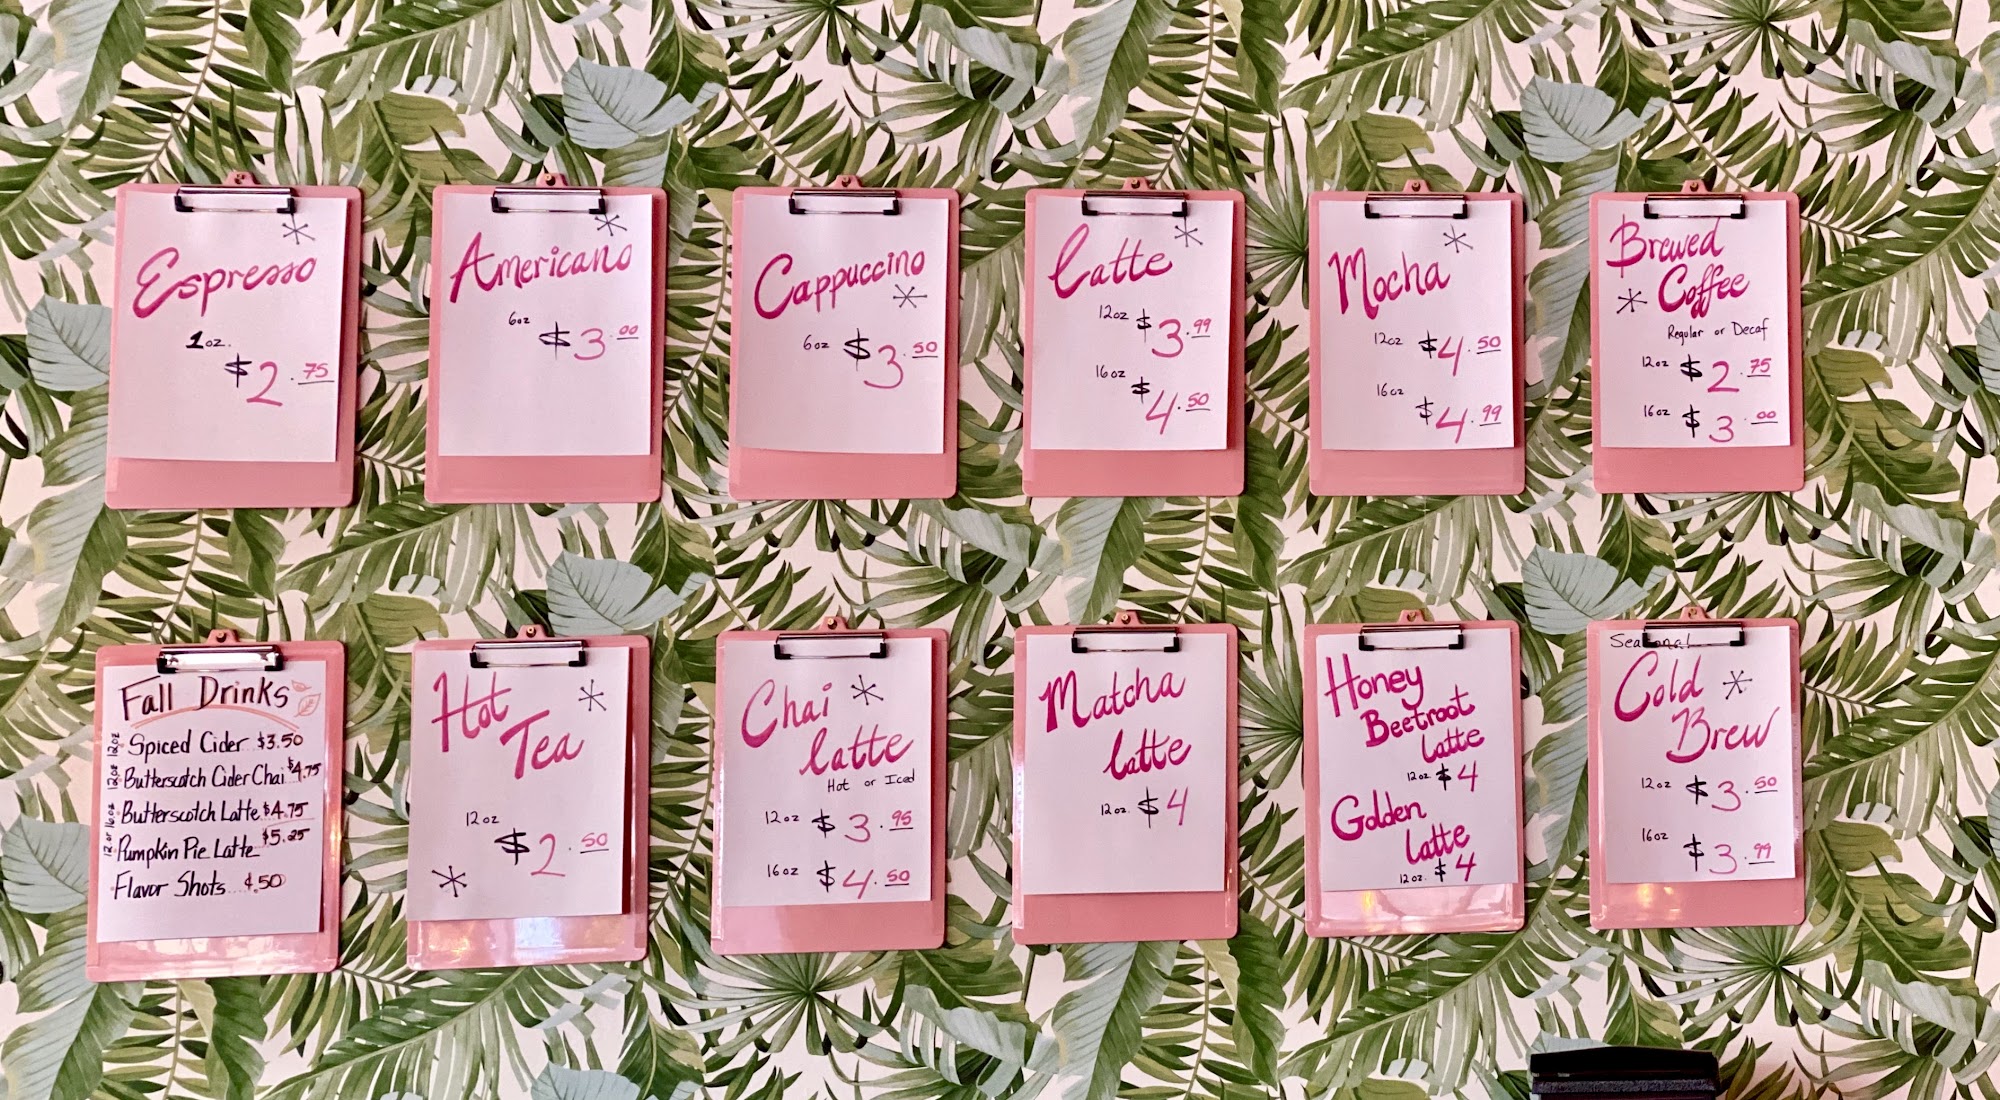 Espresso
1oz.
$2.75
Americano
6oz $3.00
Cappuccino
6oz $3.50
Latte
12oz $3.99
16oz $4.50
Mocha
12oz $4.50
16oz $4.99
Brewed
Coffee
Regular or Decaf
12oz $2.75
16oz $3.00
Fall Drinks
12oz Spiced Cider $3.50
12oz Butterscotch Cider Chai $4.75
12 or 16oz
Butterscotch Latte $4.75
Pumpkin Pie Latte $5.25
Flavor Shots... $.50
Hot
Tea
12oz
$2.50
Chai
Latte
Hot or Iced
12oz $3.95
16oz $4.50
Matcha
Latte
12oz. $4
Honey
Beetroot
Latte
12oz $4
Golden
Latte
12oz. $4
Seasonal
Cold
Brew
12oz $3.50
16oz $3.99